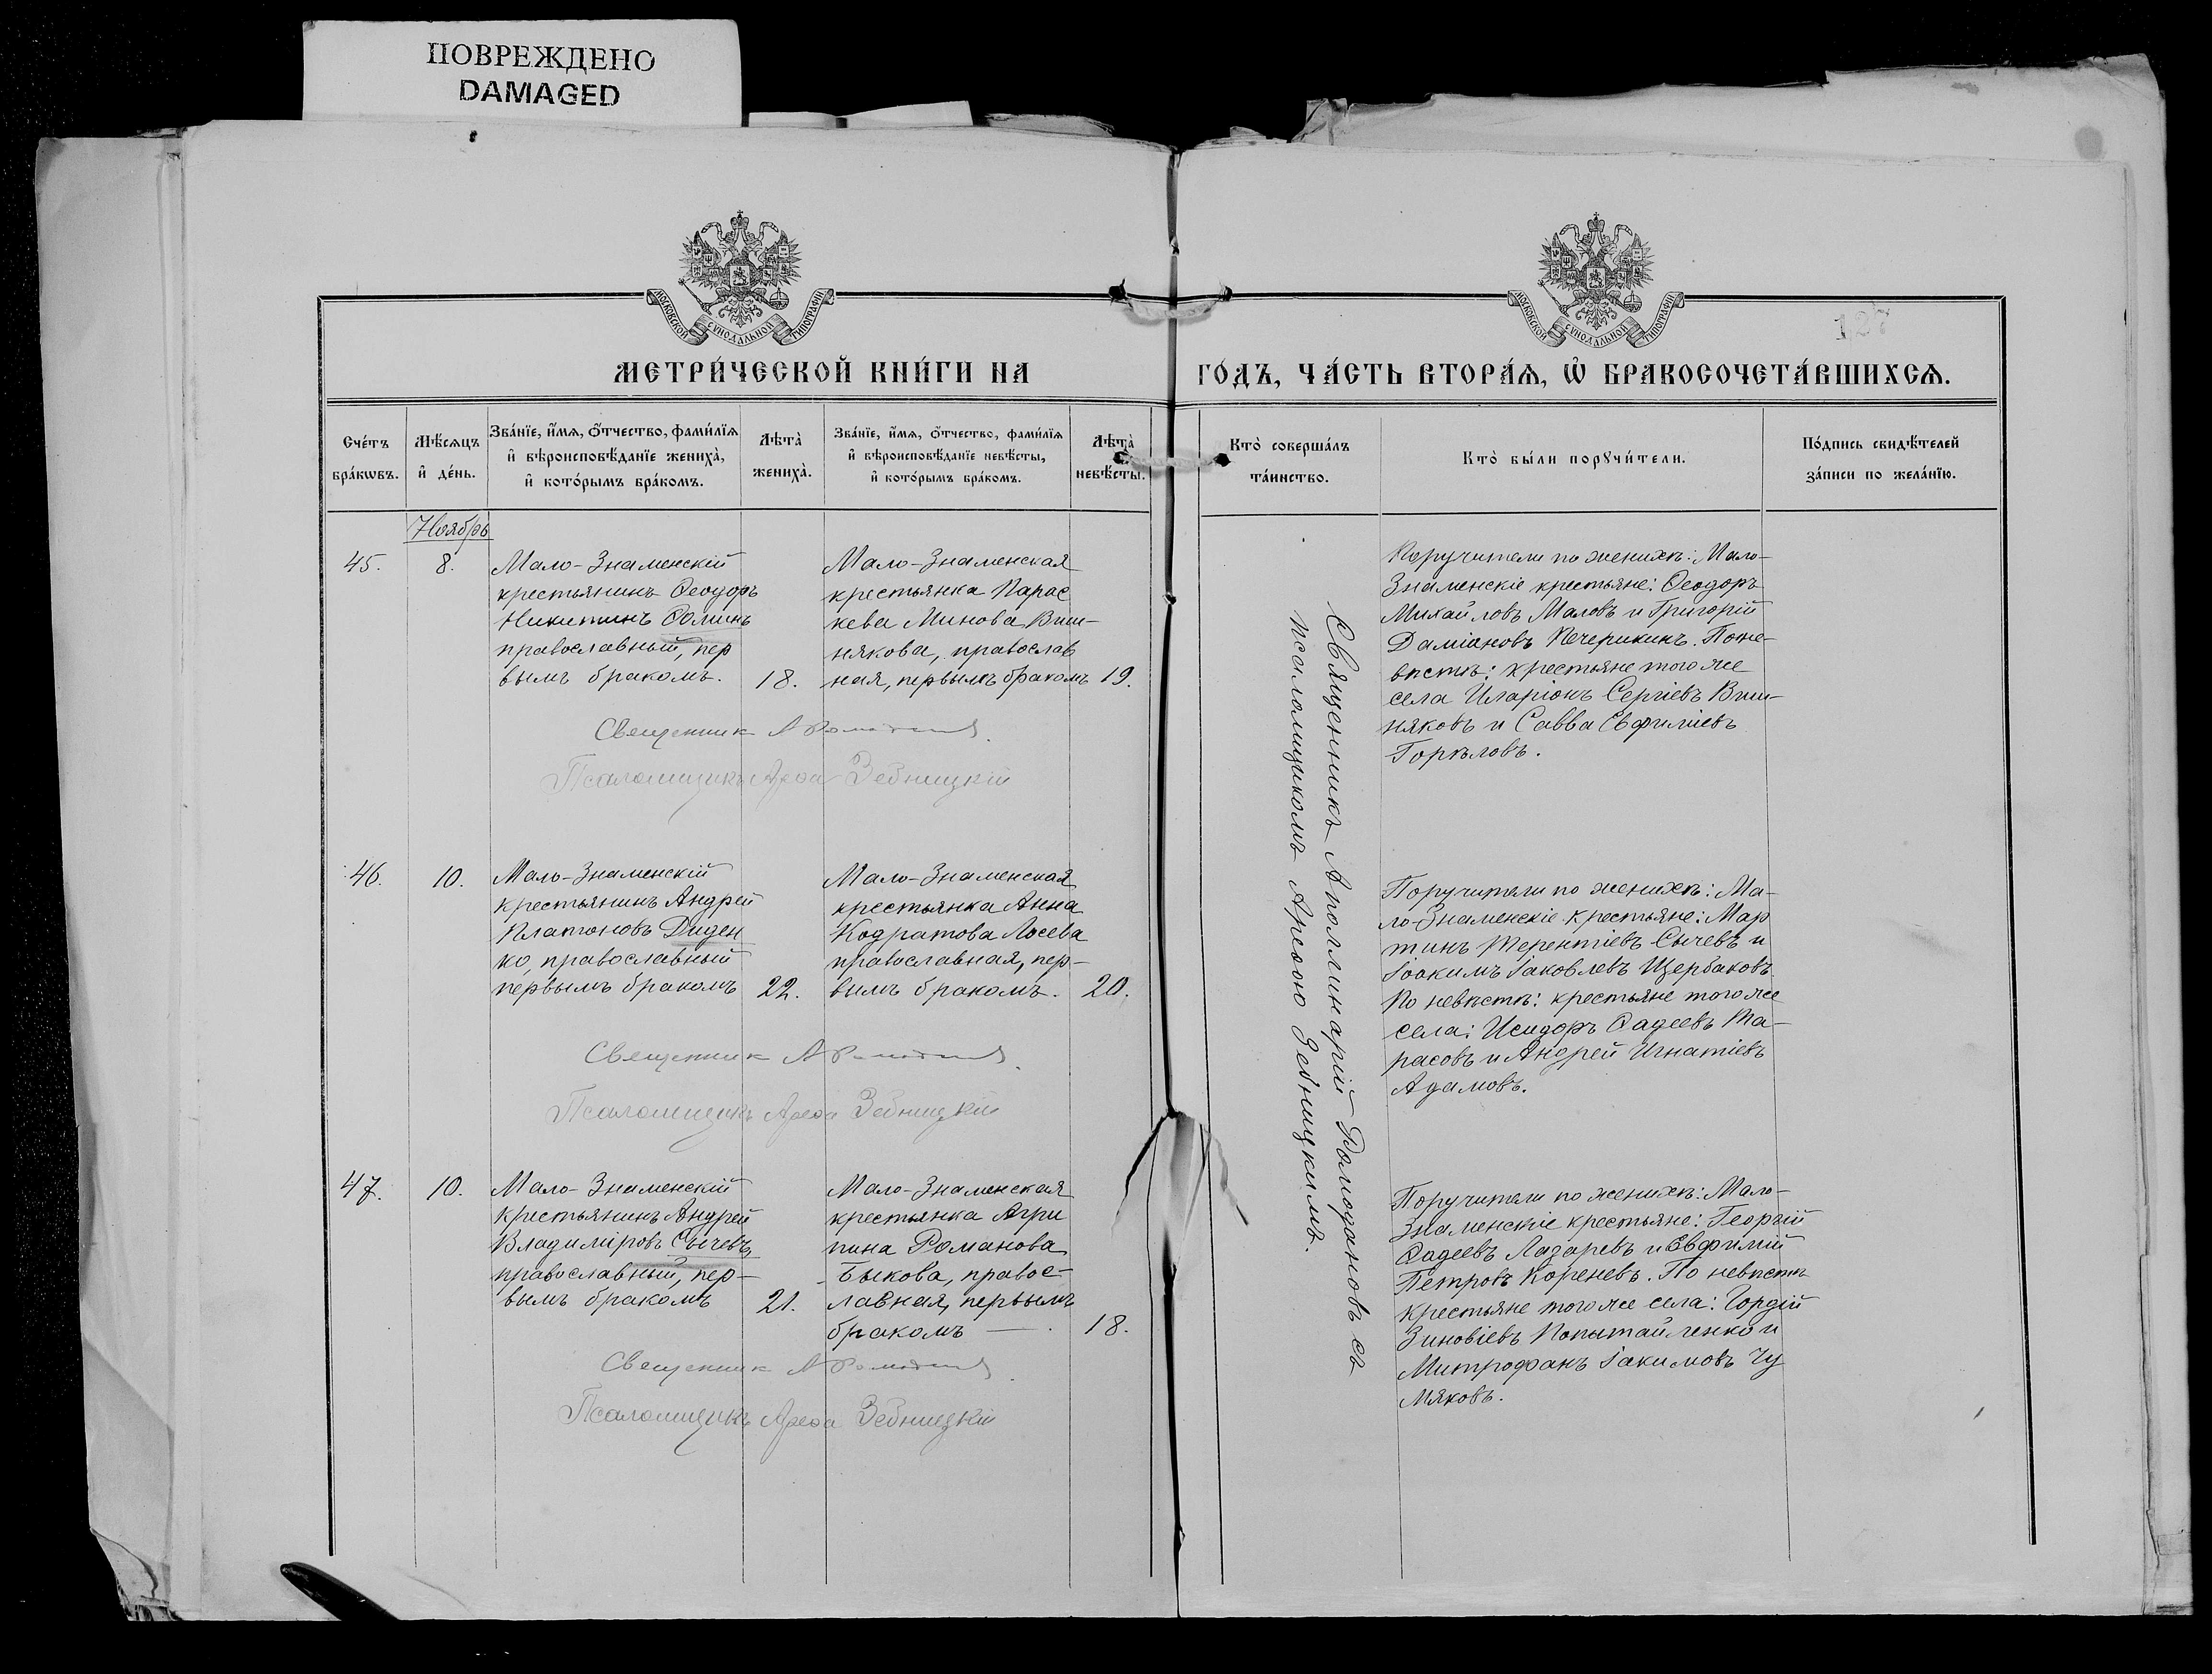 ПОВРЕЖДЕНО
DAMAGED
МОСКОВСКОЙ СѴНОДАЛЬНОЙ ТИПОГРАФІИ
МОСКОВСКОЙ СѴНОДАЛЬНОЙ ТИПОГРАФІИ
127
МЕТРИ́ЧЕСКОЙ КНИ́ГИ НА
ГО́ДЪ, ЧА́СТЬ ВТОРА́Ѧ, Ѡ҆ БРАКОСОЧЕТА́ВШИХСѦ.
Сче́тъ
бра́кѡвъ.
Мѣ́сѧцъ
и҆ де́нь.
Зва́нїе, и҆́мѧ, ѻ҆́тчество, фами́лїѧ
и҆ вѣроисповѣ́данїе жениха̀,
и҆ кото́рымъ бра́комъ.
Лѣ́та̀
жениха̀.
Зва́нїе, и҆́мѧ, ѻ҆́тчество, фами́лїѧ
и҆ вѣроисповѣ́данїе невѣ́сты,
и҆ кото́рымъ бра́комъ.
Лѣ́та̀
невѣ́сты.
Кто̀ соверша́лъ
та́инство.
Кто̀ бы́ли порꙋчи́тели.
По́дпись свидѣ́телей
за́писи по жела́нїю.
Ноябрь
45.
8.
Мало-Знаменскій
крестьянинъ Ѳеодоръ
Никитинъ Ѳоминъ
православный, пер
вымъ бракомъ.
18.
Мало-Знаменская
крестьянка Парас
кева Минова Виш-
някова, православ
ная, первымъ бракомъ
19.
Священникъ А Ромодановъ
Псаломщикъ Арефа Зебницкій
Поручители по женихѣ: Мало-
Знаменскіе крестьяне: Ѳеодоръ
Михайловъ Маловъ и Григорій
Даміановъ Печерикинъ. По не-
вѣстѣ: крестьяне того же
села Иларіонъ Сергіевъ Виш-
няковъ и Савва Евфиміевъ
Горѣловъ.
Священникъ Аполлинарій Ромодановъ съ
псаломщикомъ Арефою Зебницкимъ.
46.
10.
Мало-Знаменскій
крестьянинъ Андрей
Платоновъ Диден
ко, православный
первымъ бракомъ
22.
Мало-Знаменская
крестьянка Анна
Кодратова Лосева
православная, пер-
вымъ бракомъ.
20.
Священникъ А Ромодановъ
Псаломщикъ Арефа Зебницкій
Поручители по женихѣ: Ма-
ло-Знаменскіе крестьяне: Мар
тинъ Терентіевъ Сычевъ и
Іоакимъ Іаковлевъ Щербаковъ
По невѣстѣ: крестьяне того же
села: Исидоръ Ѳадеевъ Та-
расовъ и Андрей Игнатіевъ
Адамовъ.
47.
10.
Мало-Знаменскій
крестьянинъ Андрей
Владиміровъ Сычевъ,
православный, пер-
вымъ бракомъ
21.
Мало-Знаменская
крестьянка Агри
пина Романова
Быкова, правос-
лавная, первымъ
бракомъ —
18.
Священникъ А Ромодановъ
Псаломщикъ Арефа Зебницкій
Поручители по женихѣ: Мало-
Знаменскіе крестьяне: Георгій
Ѳадеевъ Лазаревъ и Евфимій
Петровъ Кореневъ. По невѣстѣ
крестьяне того же села: Гордій
Зиновіевъ Копытайленко и
Митрофанъ Іакимовъ Чу
мяковъ.